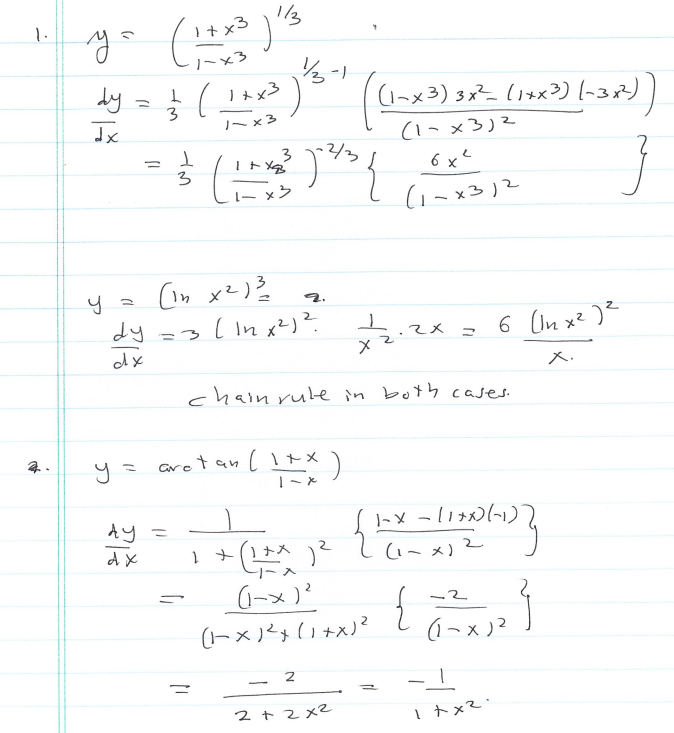 1. y = ((1+x^3)/(1-x^3))^{1/3}
dy/dx = 1/3 ((1+x^3)/(1-x^3))^{1/3-1} (((1-x^3)3x^2 - (1+x^3)(-3x^2))/(1-x^3)^2)
= 1/3 ((1+x^3)/(1-x^3))^{-2/3} { 6x^2/(1-x^3)^2 }
y = (ln x^2)^3 =
dy/dx = 3 (ln x^2)^2 . 1/x^2 . 2x = 6 (ln x^2)^2/x.
chain rule in both cases.
2. y = arctan((1+x)/(1-x))
dy/dx = 1/(1+((1+x)/(1-x))^2) { (1-x-(1+x)(-1))/(1-x)^2 }
= (1-x)^2/((1-x)^2+(1+x)^2) { -2/(1-x)^2 }
= -2/(2+2x^2) = -1/(1+x^2).